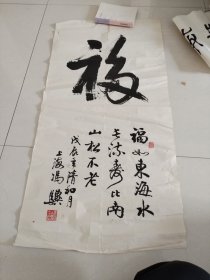 福
福如東海水
長流壽比南
山松不老
戊辰立清和月
上海馮